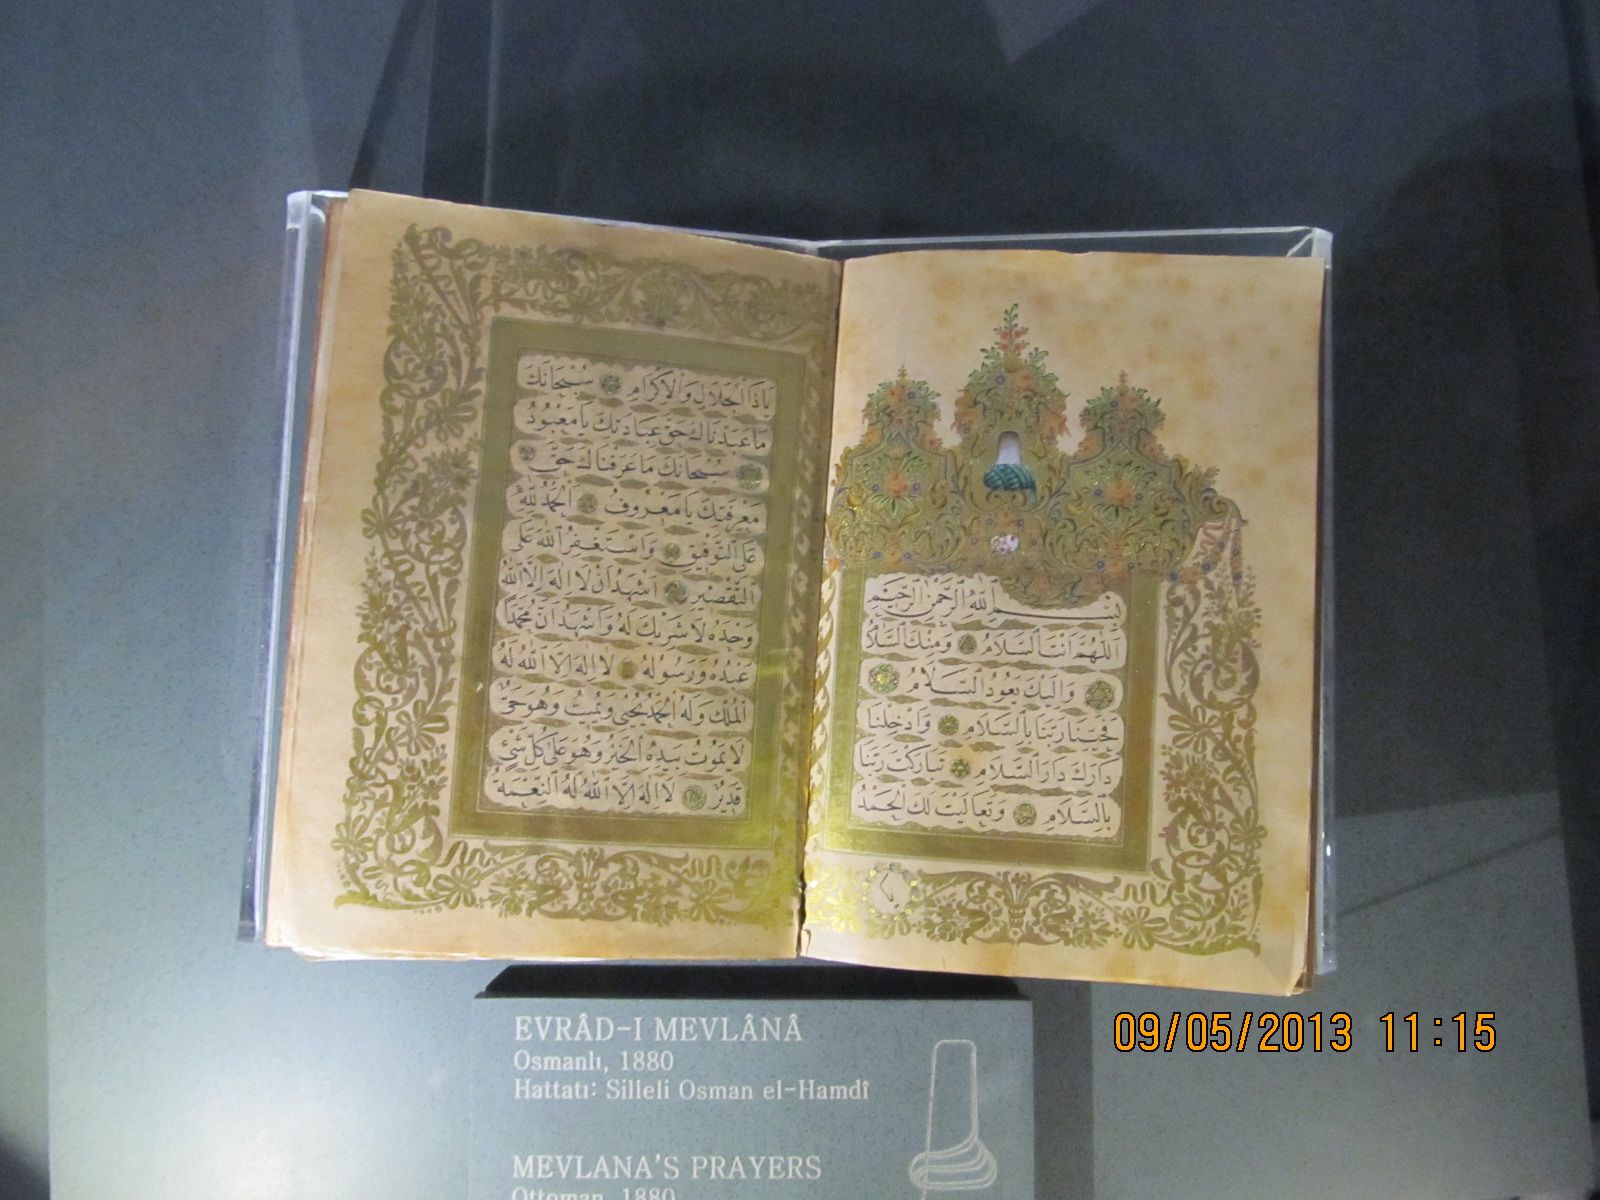 بسم الله الرحمن الرحيم
اللهم انت السلام ومنك السلام
واليك يعود السلام
فحينا ربنا بالسلام وادخلنا
دارك دار السلام تباركت ربنا
بالسلام وتعاليت لك الحمد
ياذا الجلال والاكرام سبحانك
ما عبدناك حق عبادتك يا معبود
سبحانك ما عرفناك حق
معرفتك يا معروف الحمد لله
على التوفيق واستغفر الله على
التقصير اشهد ان لا اله الا الله
وحده لا شريك له واشهد ان محمدا
عبده ورسوله لا اله الا الله له
الملك وله الحمد يحيي ويميت وهو حي
لا يموت بيده الخير وهو على كل شئ
قدير لا اله الا الله له النعمة
EVRÂD-I MEVLÂNÂ
Osmanlı, 1880
Hattatı: Silleli Osman el-Hamdî
MEVLANA'S PRAYERS
Ottoman, 1880
09/05/2013 11:15